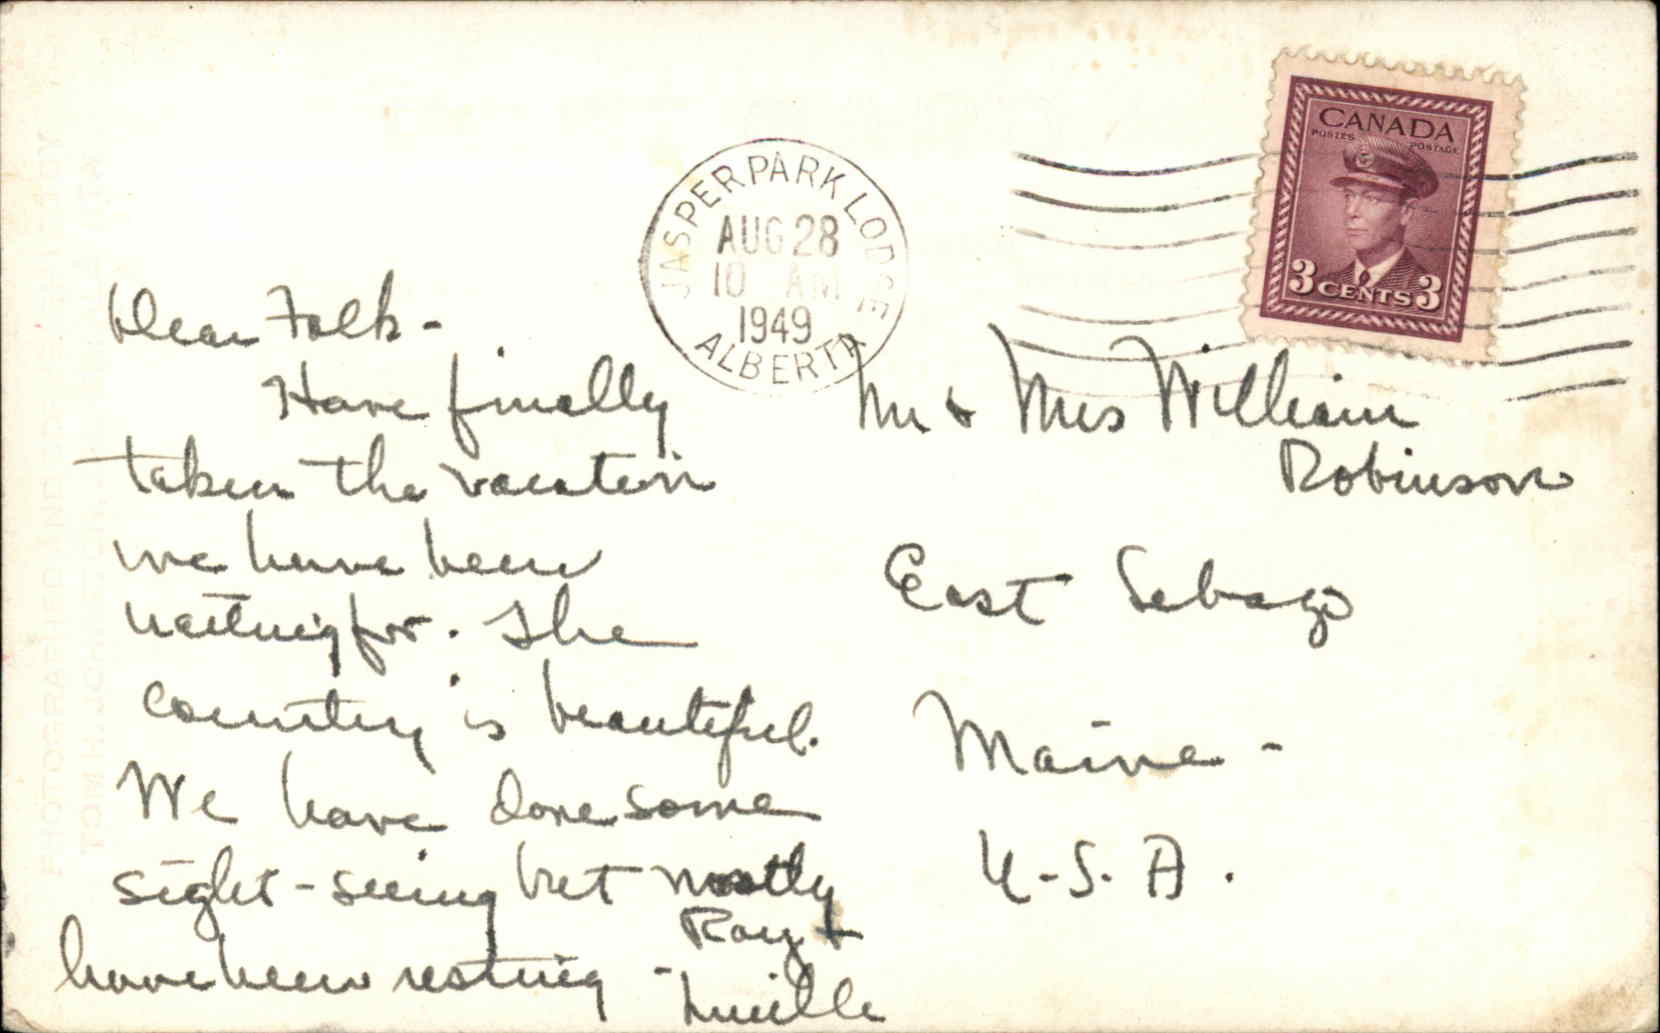 JASPER PARK LODGE
AUG 28
10 AM
1949
ALBERTA
CANADA
POSTES POSTAGE
3 CENTS 3
Dear Folk -
Have finally
taken the vacation
we have been
waiting for. The
country is beautiful.
We have done some
sight-seeing but mostly
have been resting -
Ray +
Lucille
Mr + Mrs William
Robinson
East Sebago
Maine -
U.S.A.